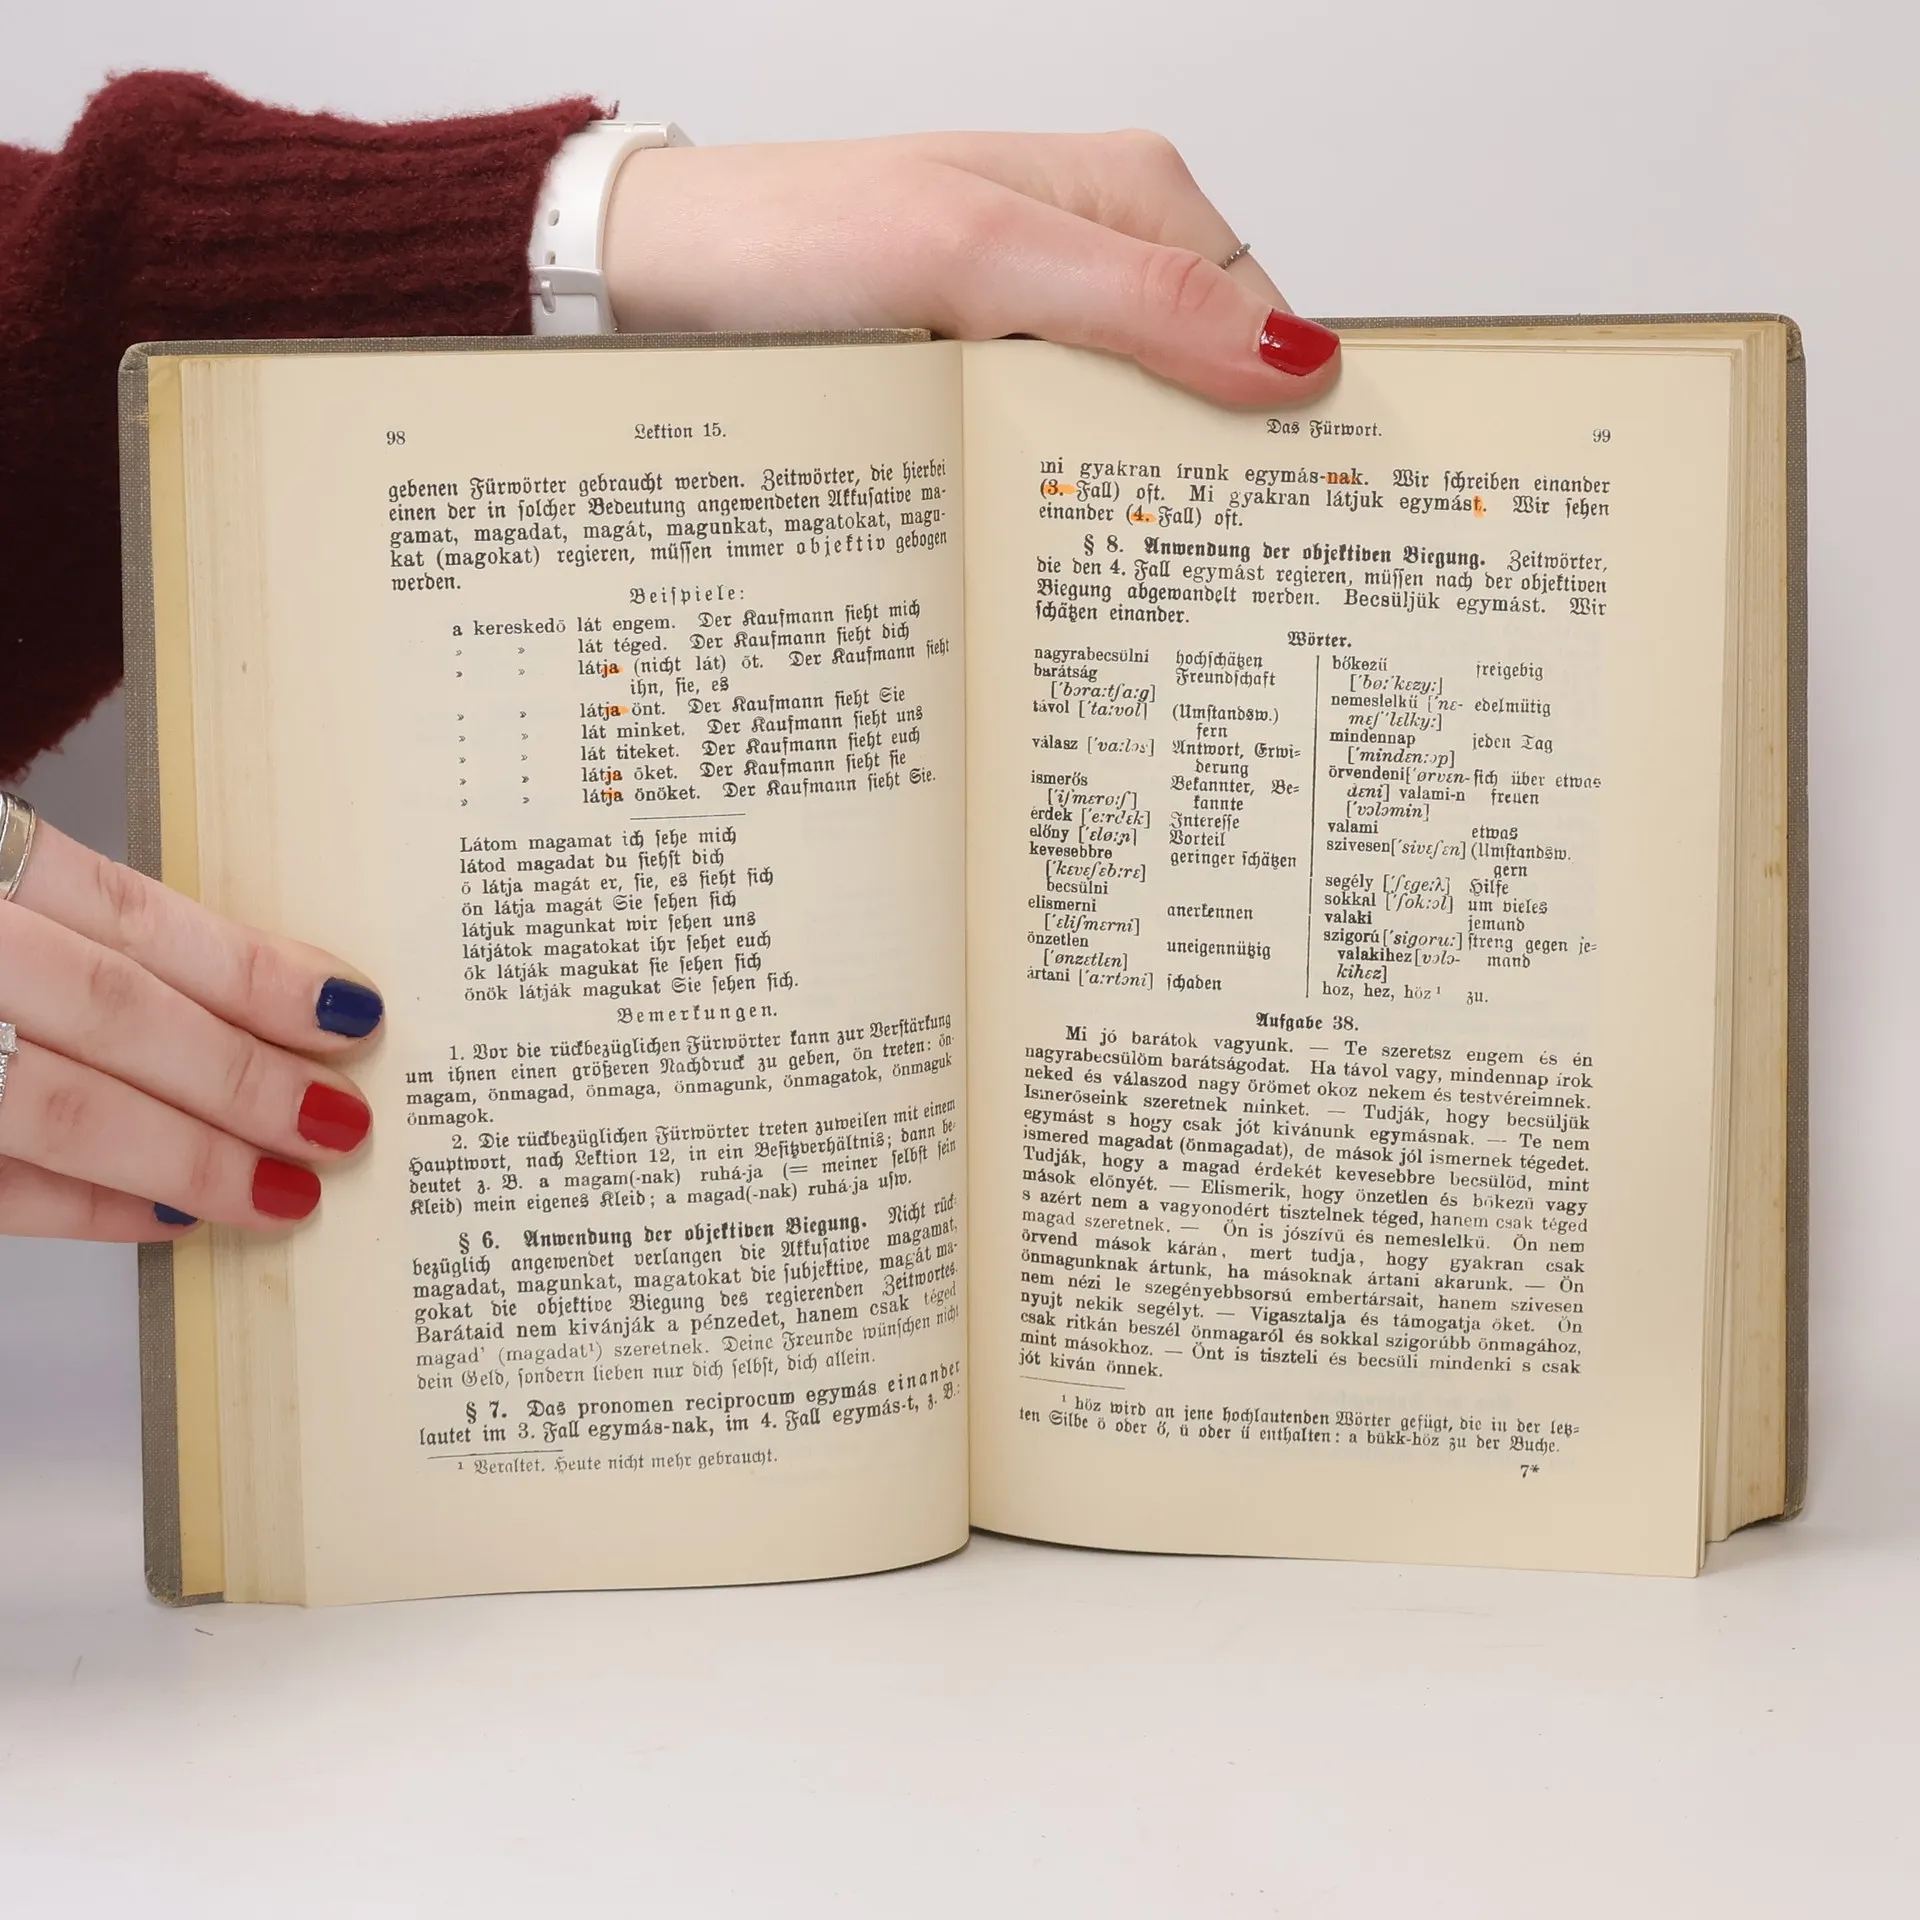 98
Lektion 15.
gebenen Fürwörter gebraucht werden. Zeitwörter, die hierbei
einen der in solcher Bedeutung angewendeten Akkusative ma-
gamat, magadat, magát, magunkat, magatokat, magu-
kat (magokat) regieren, müssen immer objektiv gebogen
werden.
Beispiele:
a kereskedő lát engem. Der Kaufmann sieht mich
» » lát téged. Der Kaufmann sieht dich
» » látja (nicht lát) őt. Der Kaufmann sieht
ihn, sie, es
» » látja önt. Der Kaufmann sieht Sie
» » lát minket. Der Kaufmann sieht uns
» » lát titeket. Der Kaufmann sieht euch
» » látja őket. Der Kaufmann sieht sie
» » látja önöket. Der Kaufmann sieht Sie.
Látom magamat ich sehe mich
látod magadat du siehst dich
ő látja magát er, sie, es sieht sich
ön látja magát Sie sehen sich
látjuk magunkat wir sehen uns
látjátok magatokat ihr sehet euch
ők látják magukat sie sehen sich
önök látják magukat Sie sehen sich.
Bemerkungen.
1. Vor die rückbezüglichen Fürwörter kann zur Verstärkung
um ihnen einen größeren Nachdruck zu geben, ön treten: ön-
magam, önmagad, önmaga, önmagunk, önmagatok, önmaguk
önmagok.
2. Die rückbezüglichen Fürwörter treten zuweilen mit einem
Hauptwort, nach Lektion 12, in ein Besitzverhältnis; dann be-
deutet z. B. a magam(-nak) ruhá-ja (= meiner selbst sein
Kleid) mein eigenes Kleid; a magad(-nak) ruhá-ja usw.
§ 6. Anwendung der objektiven Biegung. Nicht rück-
bezüglich angewendet verlangen die Akkusative magamat,
magadat, magunkat, magatokat die subjektive, magát ma-
gokat die objektive Biegung des regierenden Zeitwortes.
Barátaid nem kivánják a pénzedet, hanem csak téged
magad' (magadat¹) szeretnek. Deine Freunde wünschen nicht
dein Geld, sondern lieben nur dich selbst, dich allein.
§ 7. Das pronomen reciprocum egymás einander
lautet im 3. Fall egymás-nak, im 4. Fall egymás-t, z. B.:
¹ Veraltet. Heute nicht mehr gebraucht.
Das Fürwort.
99
mi gyakran írunk egymás-nak. Wir schreiben einander
(3. Fall) oft. Mi gyakran látjuk egymást. Wir sehen
einander (4. Fall) oft.
§ 8. Anwendung der objektiven Biegung. Zeitwörter,
die den 4. Fall egymást regieren, müssen nach der objektiven
Biegung abgewandelt werden. Becsüljük egymást. Wir
schätzen einander.
Wörter.
nagyrabecsülni hochschätzen
barátság Freundschaft
['bɔra:tʃa:g]
távol ['ta:vol] (Umstandsw.)
fern
válasz ['va:lɔs] Antwort, Erwi-
derung
ismerős Bekannter, Be-
['iʃmerø:ʃ] kannte
érdek ['e:rdɛk] Interesse
előny ['ɛlø:ɲ] Vorteil
kevesebbre geringer schätzen
['kɛvɛʃɛb:rɛ]
becsülni
elismerni anerkennen
['ɛliʃmɛrni]
önzetlen uneigennützig
['ønzɛtlɛn]
ártani ['a:rtɔni] schaden
bőkezű freigebig
['bø:'kɛzy:]
nemeslelkű ['nɛ- edelmütig
mɛʃ'lɛlky:]
mindennap jeden Tag
['mindɛn:ɔp]
örvendeni['ørvɛn- sich über etwas
dɛni] valami-n freuen
['vɔlɔmin]
valami etwas
szivesen['sivɛʃɛn] (Umstandsw.
gern
segély ['ʃɛge:ʎ] Hilfe
sokkal ['ʃok:ɔl] um vieles
valaki jemand
szigorú['sigoru:] streng gegen je-
valakihez[vɔlɔ- mand
kihɛz]
hoz, hez, höz¹ zu.
Aufgabe 38.
Mi jó barátok vagyunk. — Te szeretsz engem és én
nagyrabecsülöm barátságodat. Ha távol vagy, mindennap irok
neked és válaszod nagy örömet okoz nekem és testvéreimnek.
Ismerőseink szeretnek minket. — Tudják, hogy becsüljük
egymást s hogy csak jót kivánunk egymásnak. — Te nem
ismered magadat (önmagadat), de mások jól ismernek tégedet.
Tudják, hogy a magad érdekét kevesebbre becsülöd, mint
mások előnyét. — Elismerik, hogy önzetlen és bőkezű vagy
s azért nem a vagyonodért tisztelnek téged, hanem csak téged
magad szeretnek. — Ön is jószívű és nemeslelkű. Ön nem
örvend mások kárán, mert tudja, hogy gyakran csak
önmagunknak ártunk, ha másoknak ártani akarunk. — Ön
nem nézi le szegényebbsorsú embertársait, hanem szivesen
nyujt nekik segélyt. — Vigasztalja és támogatja őket. Ön
csak ritkán beszél önmagaról és sokkal szigorúbb önmagához,
mint másokhoz. — Önt is tiszteli és becsüli mindenki s csak
jót kiván önnek.
¹ höz wird an jene hochlautenden Wörter gefügt, die in der letz-
ten Silbe ö oder ő, ü oder ű enthalten: a bükk-höz zu der Buche.
7*